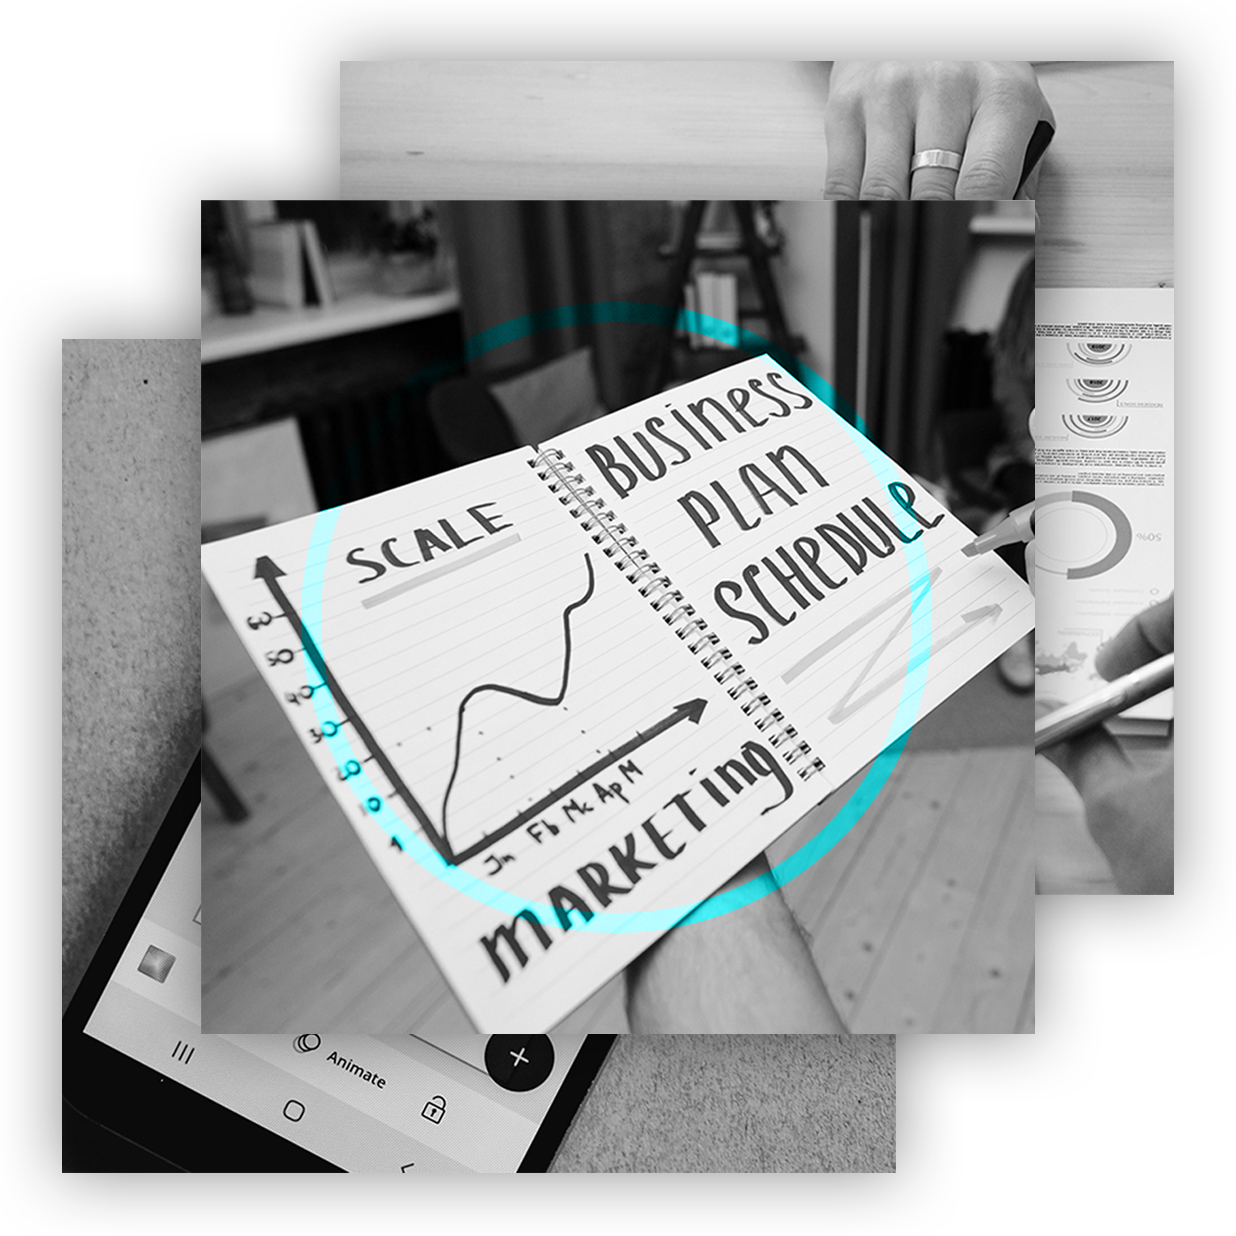 SCALE
60
50
40
30
20
10
1
Jn Fb Mc Ap M
MARKETing
BUSiNESS
PLAN
SCHEDULE
50%
Animate